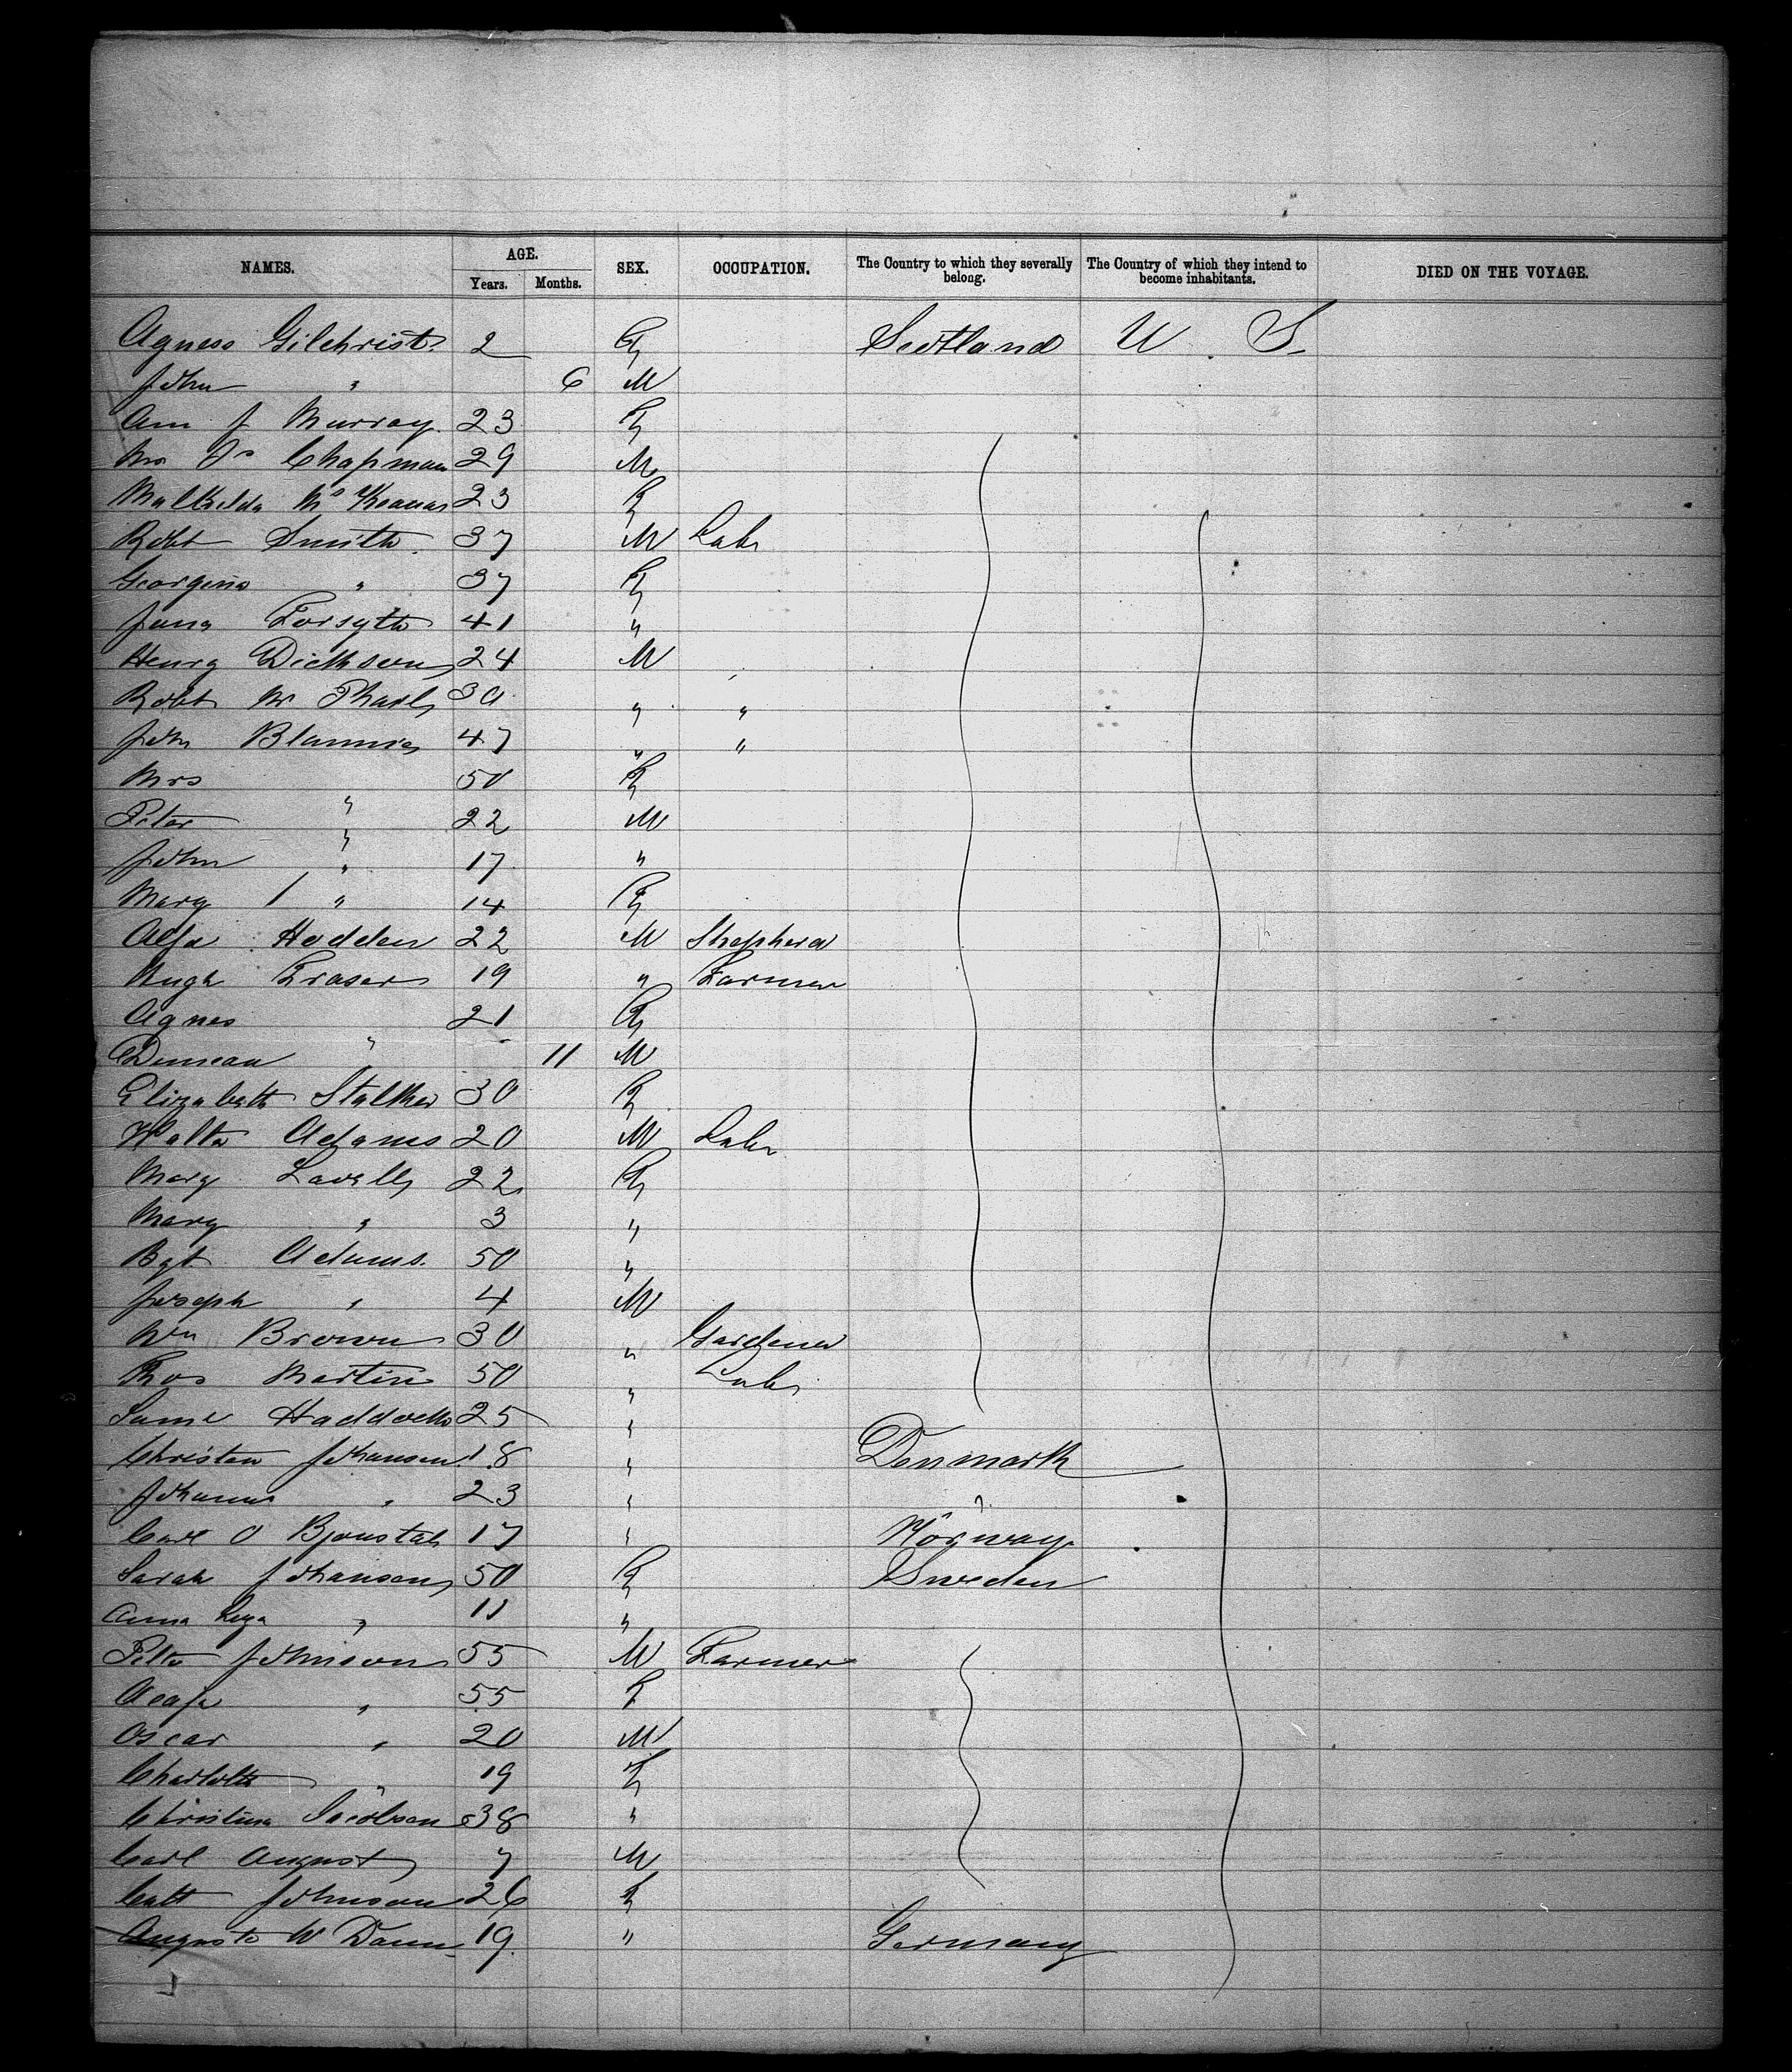 NAMES. AGE. SEX. OCCUPATION. The Country to which they severally belong. The Country of which they intend to become inhabitants. DIED ON THE VOYAGE.
Years. Months.
Agness Gilchrist 2 F Scotland U. S.
John " 6 M
Ann J Murray 23 F
Chapman 29 M
23 F
Robt Smith 37 M Labr
Georgina " 37 F
Forsyth 41 "
Henry Dickson 24 M
Robt 30 " "
John 47 " "
Mrs " 50 F
Peter " 22 M
John " 17 "
Mary " 14 F
Hodden 22 M Shepherd
Hugh Fraser 19 " Farmer
Agnes 21 F
Duncan " 11 M
Elizabeth Stalker 30 F
Walter Adams 20 M Labr
Mary Lavelle 22 F
Mary " 3 "
Bgt Adams. 50 "
Joseph " 4 M
Wm Brown 30 " Gardener
Thos Martin 50 " Labr
25 "
Johansen 18 " Denmark
23 " "
Carl O 17 " Norway
Sarah Johansen 50 F Sweden
Anna " 11 "
Peter Johnson 55 M Farmer
" 55 F
Oscar " 20 M
Charlotte " 19 F
Christina Jacobsen 38 "
Carl August 7 M
Johnson 26 F
Augusta W 19 " Germany